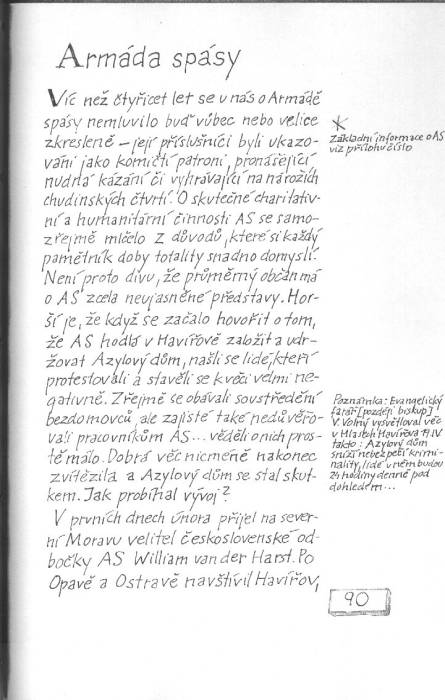 Armáda spásy
Víc než čtyřicet let se u nás o Armádě
spásy nemluvilo buď vůbec nebo velice
zkresleně – její příslušníci byli ukazo-
váni jako komičtí patroni, pronášející
nudná kázání či vyhrávající na nárožích
chudinských čtvrtí. O skutečné charitativ-
ní a humanitární činnosti AS se samo-
zřejmě mlčelo z důvodů, které si každý
pamětník doby totality snadno domyslí.
Není proto divu, že průměrný občan má
o AS zcela neujasněné představy. Hor-
ší je, že když se začalo hovořit o tom,
že AS hodlá v Havířově založit a udr-
žovat Azylový dům, našli se lidé, kteří
protestovali a stavěli se k věci velmi ne-
gativně. Zřejmě se obávali soustředění
bezdomovců, ale zajisté také nedůvěřo-
vali pracovníkům AS... věděli o nich pros-
tě málo. Dobrá věc nicméně nakonec
zvítězila a Azylový dům se stal skut-
kem. Jak probíhal vývoj?
V prvních dnech února přijel na sever-
ní Moravu velitel československé od-
bočky AS William van der Harst. Po
Opavě a Ostravě navštívil Havířov,
*
Základní informace o AS
viz příloha číslo
Poznámka: Evangelický
farář [později biskup]
V. Volný vysvětloval věc
v Hlasech Havířova
takto: Azylový dům
sníží nebezpečí krimi-
nality, lidé v něm budou
24 hodiny denně pod
dohledem...
90